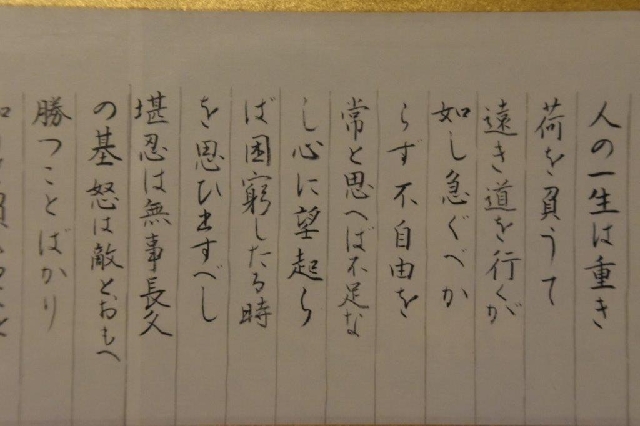 人の一生は重き
荷を負うて
遠き道を行くが
如し急ぐべか
らず不自由を
常と思へば不足な
し心に望起ら
ば困窮したる時
を思ひ出すべし
堪忍は無事長久
の基怒は敵とおもへ
勝つことばかり